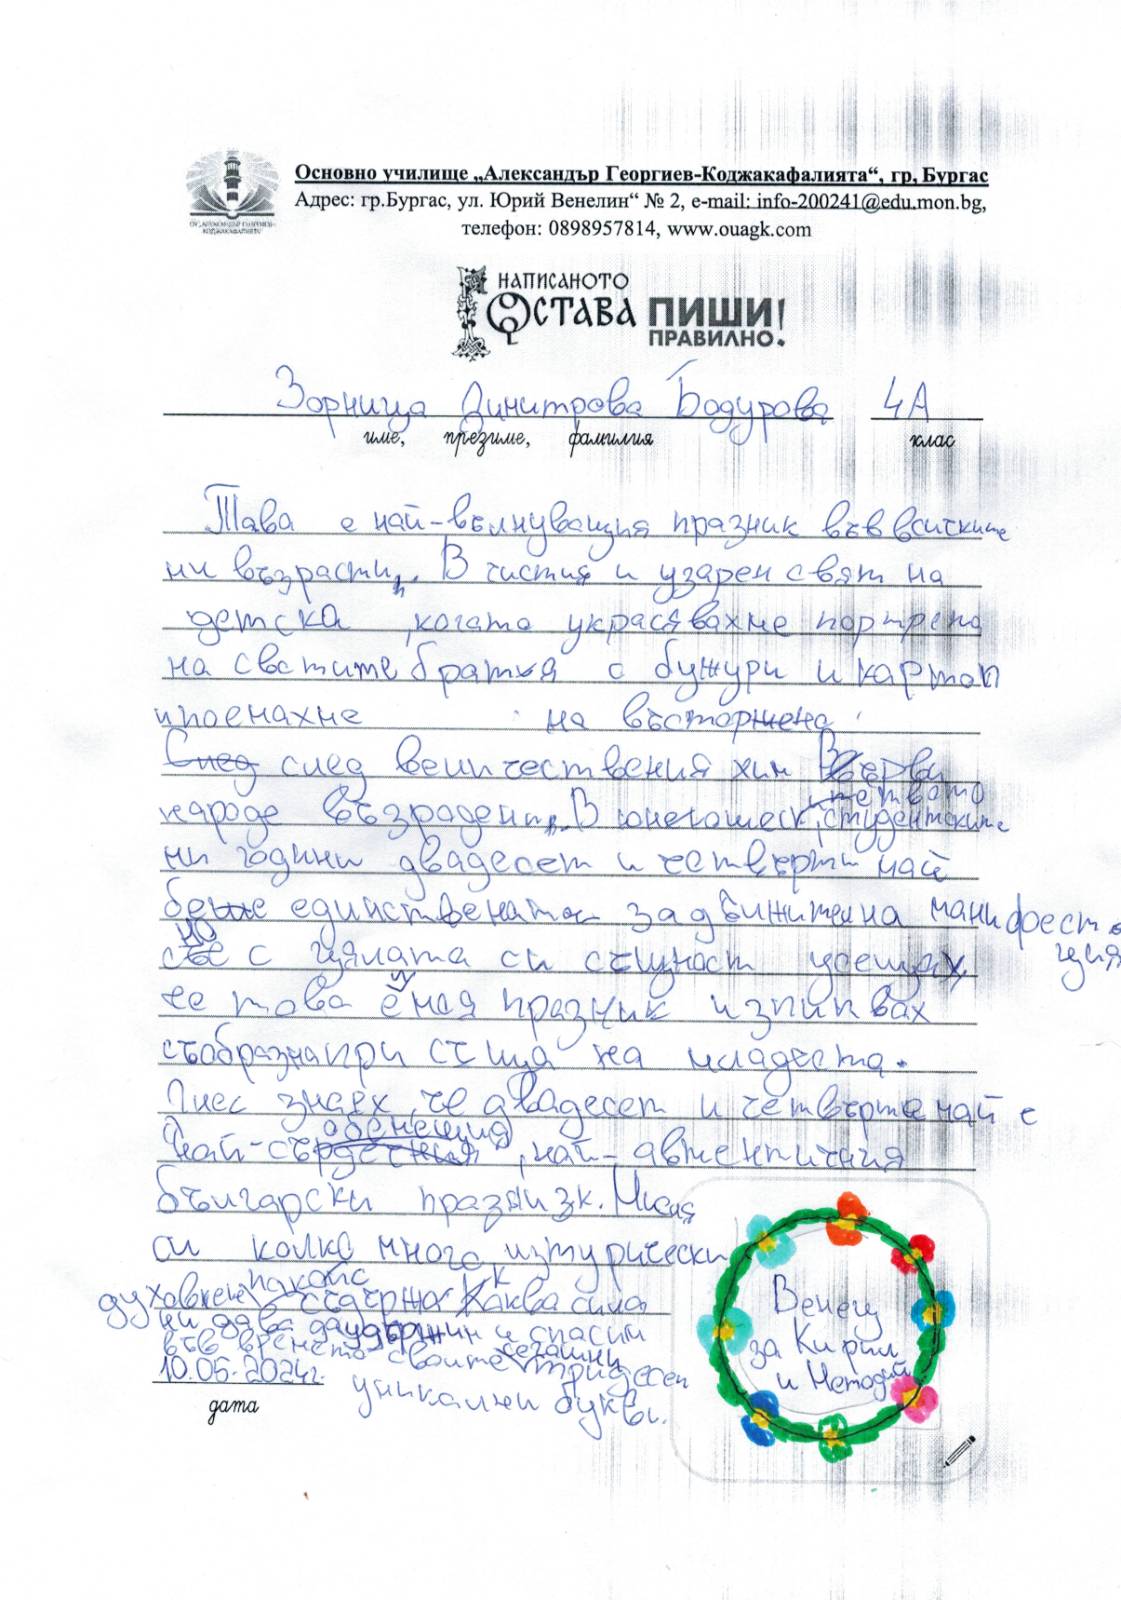 Основно училище „Александър Георгиев-Коджакафалията“, гр. Бургас
Адрес: гр.Бургас, ул. Юрий Венелин“ № 2, e-mail: info-200241@edu.mon.bg,
телефон: 0898957814, www.ouagk.com
ОУ „АЛЕКСАНДЪР ГЕОРГИЕВ-
КОДЖАКАФАЛИЯТА“
НАПИСАНОТО
ОСТАВА ПИШИ
ПРАВИЛНО!
Зорница Димитрова Бодурова 4А
име, презиме, фамилия клас
Тава е най-вълнуващия празник във всичките
ни възрасти. В чистия и узарен свят на
детска, когато украсявахме портрета
на светите братя с бужури и
на
След след величествения хим Върви
народе възрадени. В студентските
ни години двадесет и четвърти май
беше единствената задвижителна манифестация
но с цялата си същност усещах
че това е моя празник изпиквах
съобразнапри същa на младеста.
Днес знаех, че двадесет и четверти май е
най- , най-автентичния
български празник. Мисля
си колко много изтурически
духовкене накойс съдържа Каква сила
ни дава да и спасим
във времето своите тридесет
уникални букви.
10.05.2024г.
дата
Венец
за Кирил
и Методий